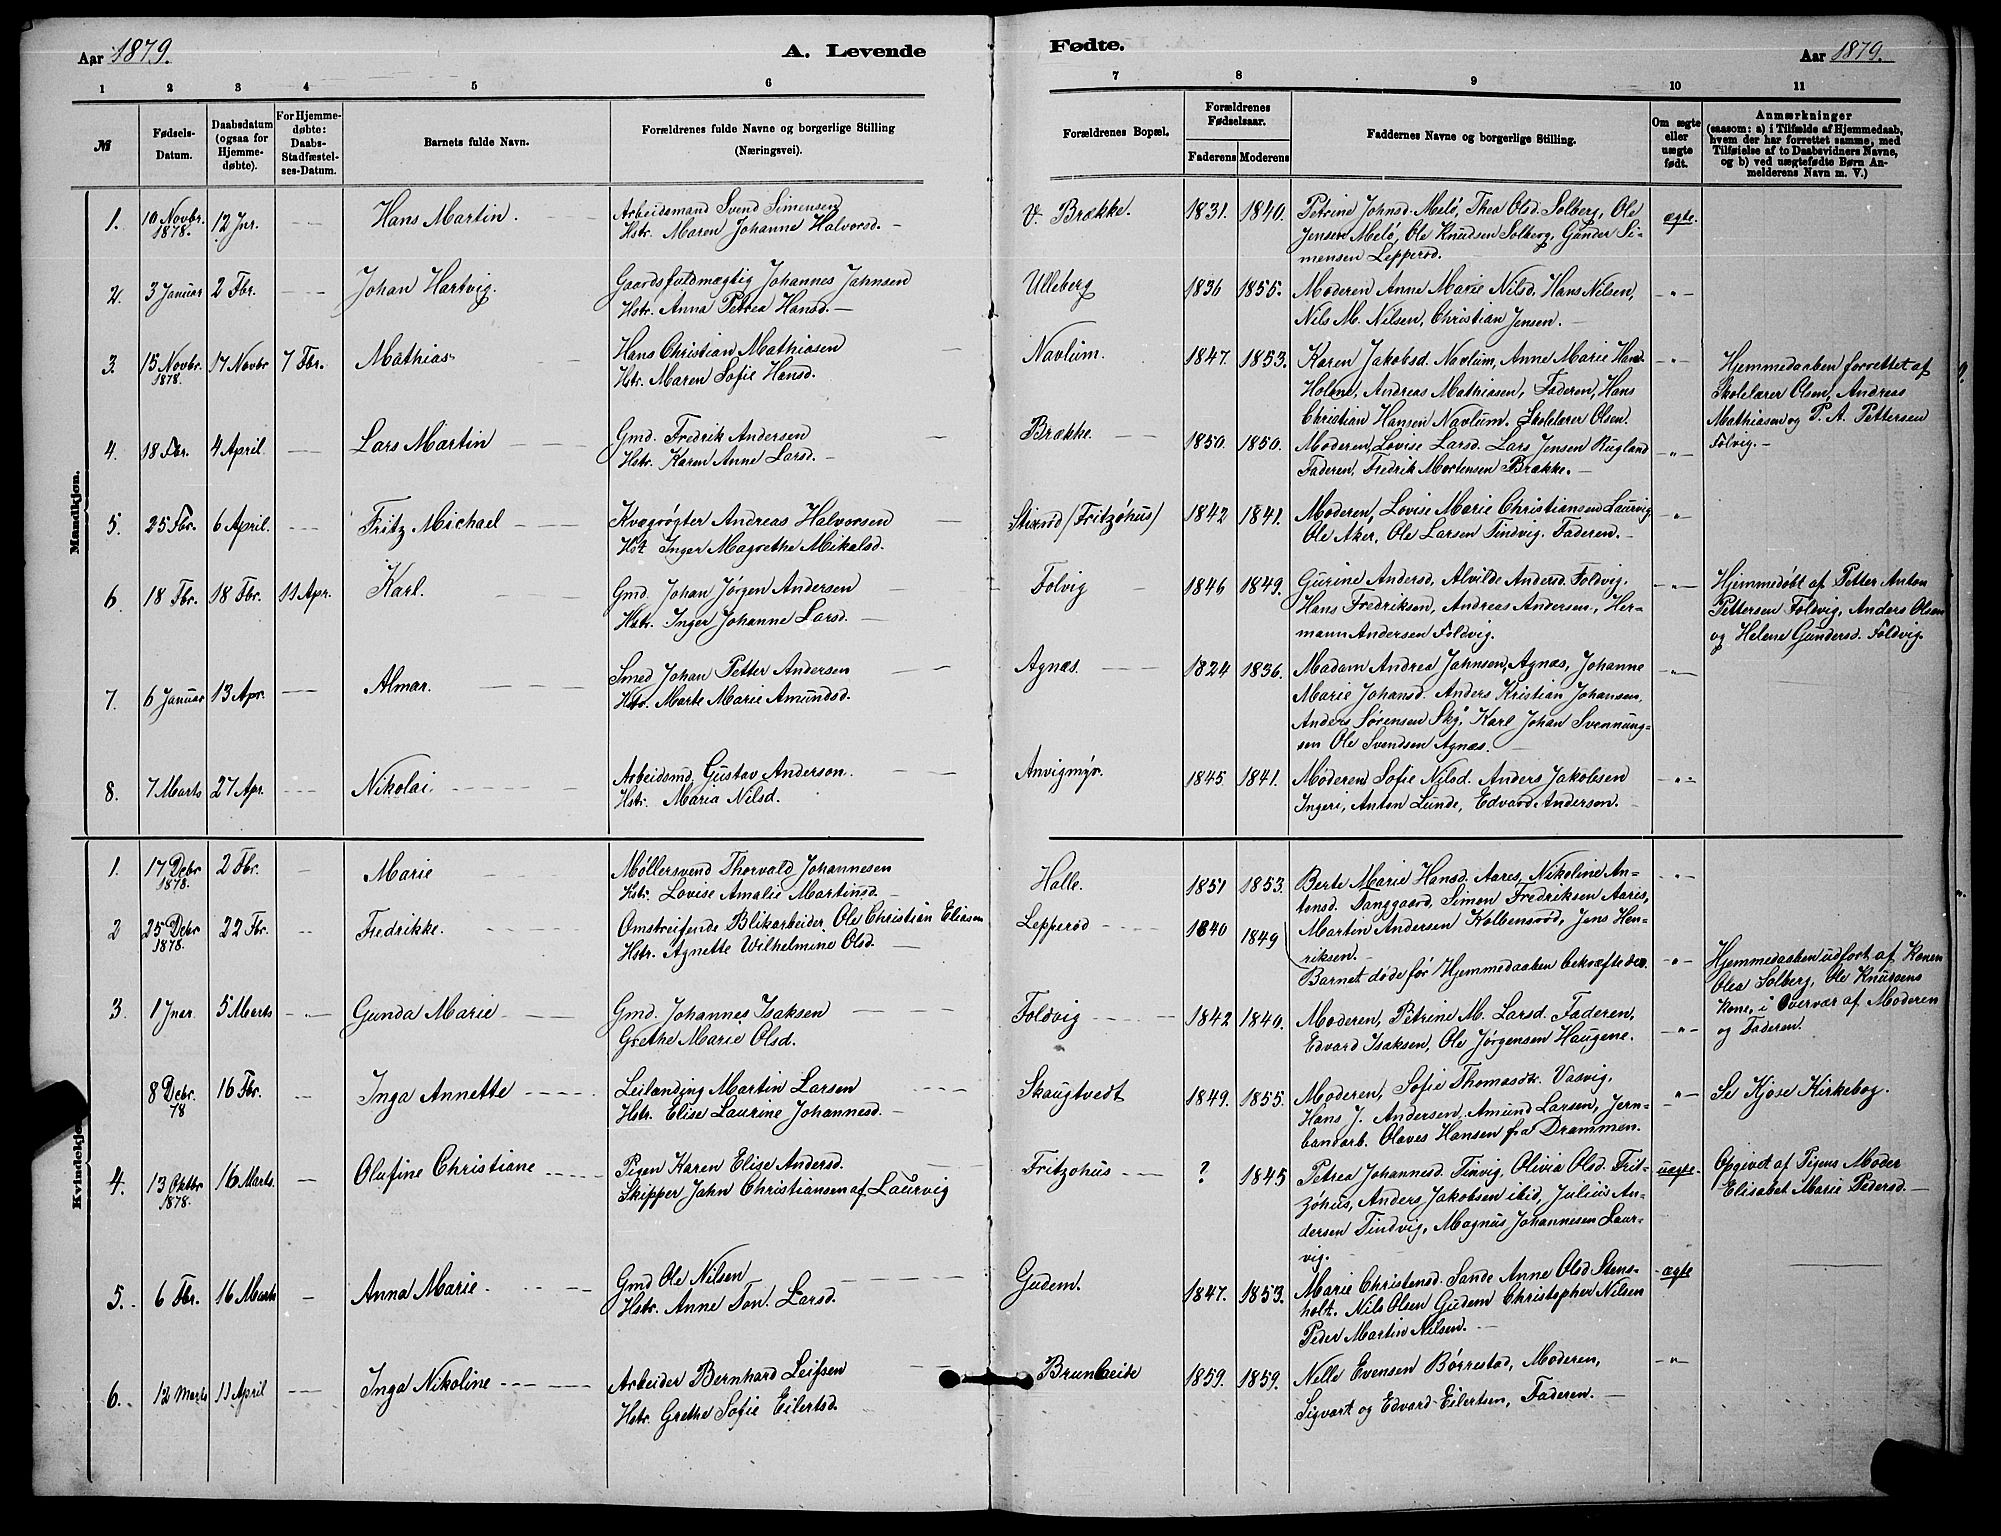 Aar 1879.
A. Levende
Fødte.
Aar 1879.
1 2 3 4 5 6
7 8 9 10 11
№
Fødsels-Datum.
Daabsdatum (ogsaa for Hjemme-døbte).
For Hjemme-døbte: Daabs-Stadfæstel-ses-Datum.
Barnets fulde Navn.
Forældrenes fulde Navne og borgerlige Stilling (Næringsvei).
Forældrenes Bopæl.
Forældrenes Fødselsaar.
Faderens Moderens
Faddernes Navne og borgerlige Stilling.
Om ægte eller uægte født.
Anmærkninger
(saasom: a) i Tilfælde af Hjemmedaab,
hvem der har forrettet samme, med
Tilføielse af to Daabsvidners Navne,
og b) ved uægtefødte Børn An-
melderens Navn m. V.)
Mandkjøn.
1. 10 Novbr. 1878. 12 Jnr. Hans Martin.
Arbeidsmand Svend Simensen
Hstr. Maren Johanne Halvorsd.
V. Brække. 1831. 1840.
Petrine Johnsd. Melø, Thea Olsd. Solberg, Ole
Jensen Melø, Ole Knudsen Solberg, Gunder Si-
mensen Lepperød.
ægte.
2. 3 Januar 2 Fbr. Johan Hartvig.
Gaardsfuldmægtig Johannes Jahnsen
Hstr. Anna Petrea Hansd.
Ulleberg 1836 1855.
Moderen Anne Marie Nilsd. Hans Nilsen,
Nils M. Nilsen, Christian Jensen.
-"-
3. 15 Novbr. 1878. 17 Novbr 7 Fbr. Mathias
Hans Christian Mathiasen
Hstr. Maren Sofie Hansd.
Navlum. 1847. 1853.
Karen Jakobsd. Navlum, Anne Marie Hansd.
Holene, Andreas Mathiasen, Faderen, Hans
Christian Hansen Navlum. Skolelærer Olsen.
-"-
Hjemmedaaben forrettet af
Skolelærer Olsen, Andreas
Mathiasen og P. A. Pettersen
Folvig.
4. 18 Fbr. 4 April. Lars Martin
Gmd. Fredrik Andersen
Hstr. Karen Anne Larsd.
Brække. 1850. 1850.
Moderen, Lovise Larsd. Lars Jensen Rugland
Faderen, Fredrik Mortensen Brække.
-"-
5. 25 Fbr. 6 April. Fritz Michael
Kvægrøgter Andreas Halvorsen
Hst. Inger Magrethe Mikalsd.
(Fritzøhus) 1842 1841.
Moderen, Lovise Marie Christiansen Laurvig
Ole Aker, Ole Larsen Tindvig. Faderen.
-"-
6. 18 Fbr. 18 Fbr. 11 Apr. Karl.
Gmd. Johan Jørgen Andersen
Hstr. Inger Johanne Larsd.
Folvig 1846 1849.
Gurine Andersd, Alvilde Andersd. Foldvig.
Hans Fredriksen, Andreas Andersen, Her-
mann Andersen Foldvig.
-"-
Hjemmedøbt af Petter Anton
Pettersen Foldvig, Anders Olsen
og Helene Gundersd. Foldvig.
7. 6 Januar 13 Apr. Almar.
Smed Johan Petter Andersen
Hstr. Marte Marie Amundsd.
Agnæs. 1824 1836.
Madam Andrea Jahnsen, Agnæs, Johanne
Marie Johansd. Anders Kristian Johansen.
Anders Sørensen Sky, Karl Johan Svennung-
sen Ole Svendsen Agnæs.
-"-
8. 7 Marts 27 Apr. Nikolai
Arbeidsmd. Gustav Anderson.
Hstr. Maria Nilsd.
Anvigmyr. 1845 1841.
Moderen Sofie Nilsd. Anders Jakobsen
Ingeri, Anton Lunde, Edvard Anderson.
-"-
Kvindekjøn.
1. 17 Debr 1878. 2 Fbr. Marie
Møllersvend Thorvald Johannesen
Hstr. Lovise Amalie Martinsd.
Halle. 1851 1853.
Berte Marie Hansd. Aares, Nikoline An-
tonsd. Danggaard, Simon Fredriksen Aares,
Martin Andersen Kolbensrød, Jens Hen-
riksen.
-"-
2 25 Debr 1878. 22 Fbr. Fredrikke.
Omstreifende Blikarbeider Ole Christian Eliasen
Hstr. Agnette Wilhelmine Olsd.
Lepperød 1840 1849
Barnet døde før Hjemmedaaben bekræftedes.
-"-
Hjemmedaaben udført af Konen
Olea Solberg, Ole Knudsens
Kone, i Overvær af Moderen
og Faderen.
3 1 Jnar. 5 Marts Gunda Marie
Gmd. Johannes Isaksen
Grethe Marie Olsd.
Foldvig 1842 1840.
Moderen, Petrine M. Larsd. Faderen,
Edvard Isaksen, Ole Jørgensen Haugene.
-"-
8 Debr. 78 16 Fbr. Inga Annette
Leilænding Martin Larsen
Hstr. Elise Laurine Johannesd.
Skaugtvedt 1849. 1855.
Moderen, Sofie Thomasdtr. Vasvig,
Hans J. Andersen, Amund Larsen, Jern-
banearb. Olaves Hansen fra Drammen.
-"-
Se Kjose Kirkebog.
4. 13 Oktbr 1878. 16 Marts. Olufine Christiane
Pigen Karen Elise Andersd.
Skipper Jahn Christiansen af Laurvig
Fritzøhus ? 1845
Petrea Johannesd. Tinvig, Olivia Olsd. Frit-
zøhus, Anders Jakobsen ibid, Julius An-
dersen Tindvig, Magnus Johannesen Laur-
vig.
uægte.
Opgivet af Pigens Moder
Elisabet Marie Pedersd.
5. 6 Fbr. 16 Marts Anna Marie.
Gmd Ole Nilsen
Hstr. Anne Ton. Larsd.
Gudem. 1847. 1853.
Marie Christensd. Sande Anne Olsd Stens-
holt. Nils Olsen Gudem Christopher Nilsen
Peder Martin Nilsen.
ægte
6. 12 Marts 11 April Inga Nikoline
Arbeider Bernhard Leifsen
Hstr. Grethe Sofie Eilertsd.
Brunbeite 1859. 1859.
Nelle Evensen Børrestad, Moderen,
Sigvart og Edvard Eilertsen, Faderen.
-"-